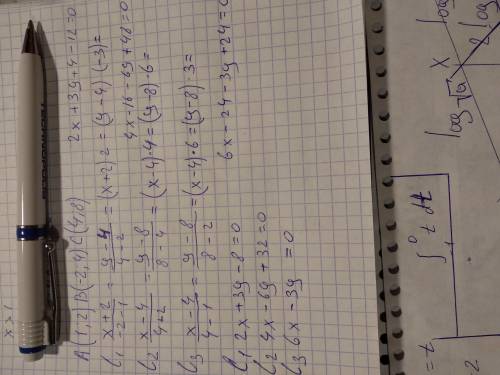 x > 1
A(1,2) B(-2,4) C(4,8)
l₁ (x+2)/(-2-1) = (y-4)/(4-2) = (x+2)2 = (y-4)(-3) =
2x+3y+4-12=0
l₂ (x-4)/(4+2) = (y-8)/(8-4) = (x-4)·4 = (y-8)·6 =
4x-16-6y+48=0
l₃ (x-4)/(4-1) = (y-8)/(8-2) = (x-4)·6 = (y-8)·3 =
6x-24-3y+24=0
l₁ 2x+3y-8=0
l₂ 4x-6y+32=0
l₃ 6x-3y =0
= t
∫ t dt
0
-1
2
log√a x